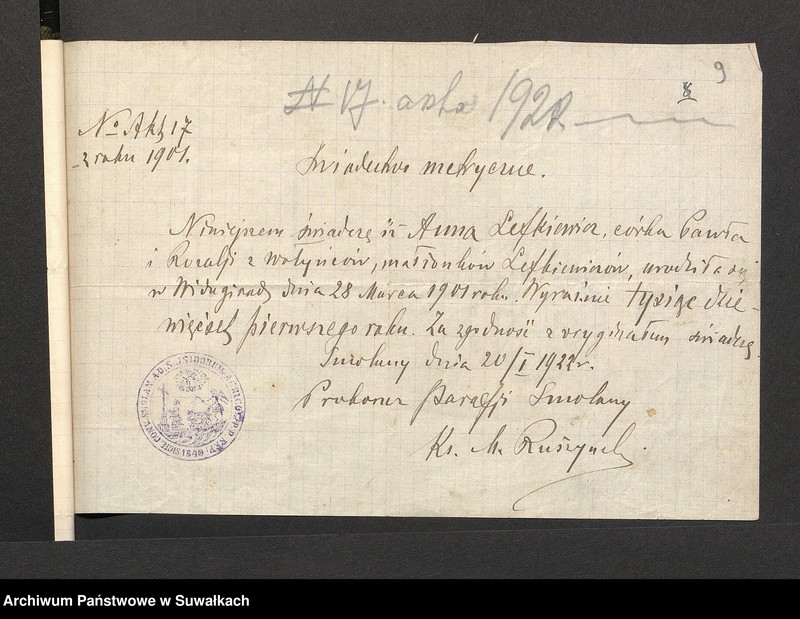 9
8
N 17. akta 1922.
No Akt 17
z roku 1901.
Świadectwo metryczne.
Niniejszem świadczę iż Anna Lefkiewicz, córka Pawła
i Rozalji z Wołyńców, małżonków Lefkiewiczów, urodziła się
w Widugierach dnia 28 Marca 1901 roku. Wyraźnie tysiąc dzie-
więćset pierwszego roku. Za zgodność z oryginałem świadczę.
Smolany dnia 20/I 1922 r.
Proboszcz Parafji Smolany
Ks. M.
1840
Archiwum Państwowe w Suwałkach